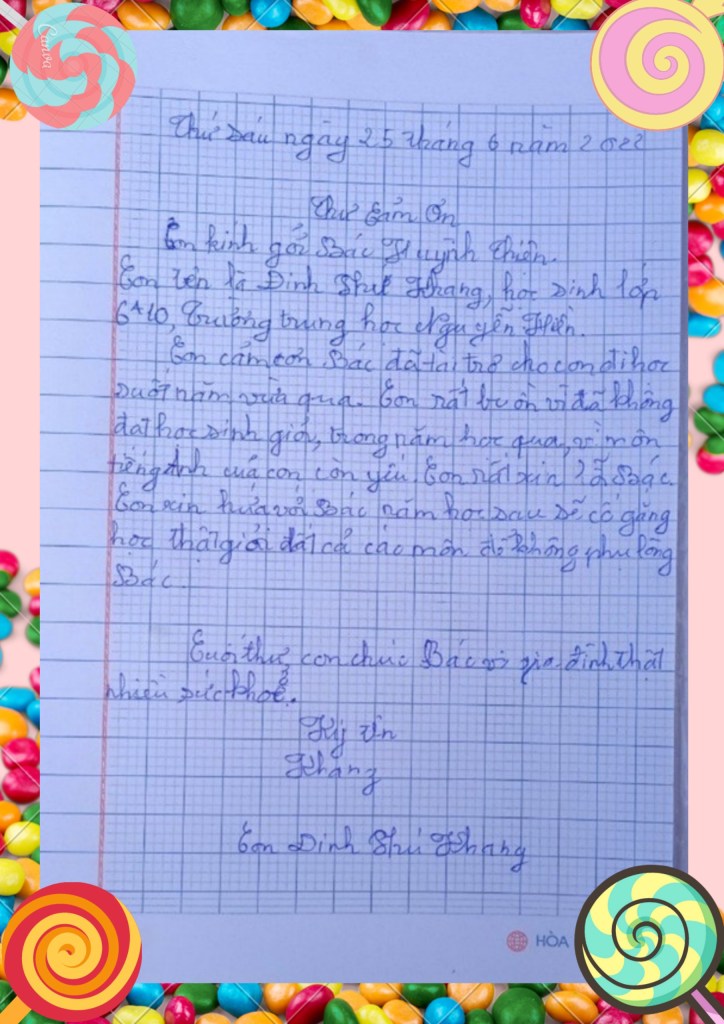 Canva
Thứ Sáu ngày 25 tháng 6 năm 2022
Thư Cảm Ơn
Con kính gởi Bác Huỳnh Thiên.
Con tên là Đinh Phú Khang, học sinh lớp
6A10, Trường trung học Nguyễn Hiền.
Con cảm ơn Bác đã tài trợ cho con đi học
suốt năm vừa qua. Con rất buồn vì đã không
đạt học sinh giỏi, trong năm học qua, vì môn
tiếng Anh của con còn yếu. Con rất xin lỗi Bác.
Con xin hứa với Bác năm học sau sẽ cố gắng
học thật giỏi tất cả các môn để không phụ lòng
Bác.
Cuối thư, con chúc Bác và gia đình thật
nhiều sức khoẻ.
Ký tên
Khang
Con Đinh Phú Khang
HÒA